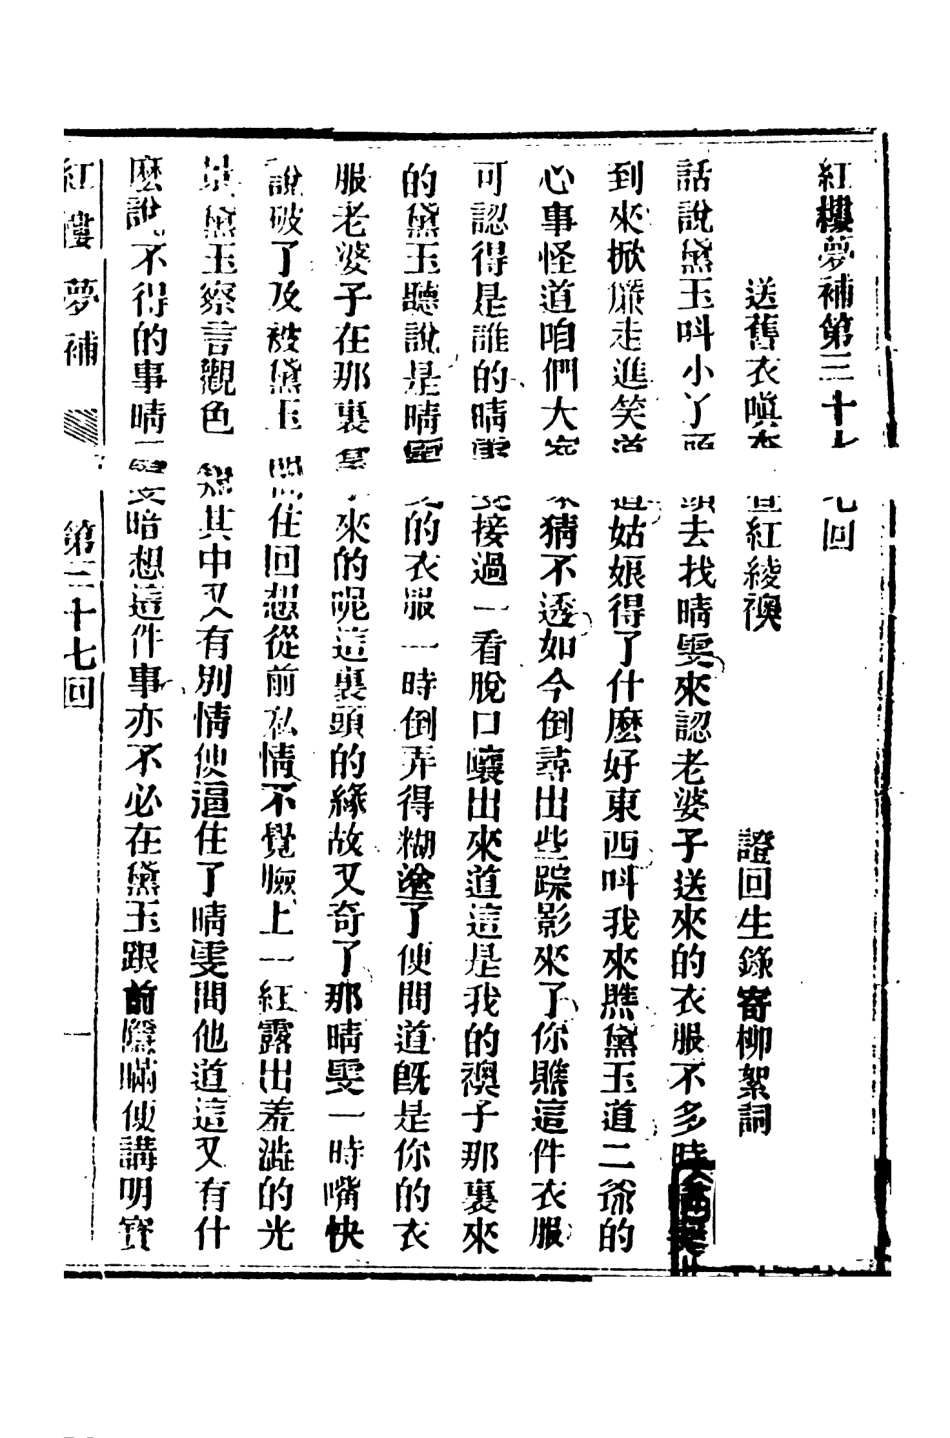 紅樓夢補第三十七回
送舊衣嗔査紅綾襖 證回生錄寄柳絮詞
話說黛玉呌小丫頭去找晴雯來認老婆子送來的衣服不多時
到來掀簾走進笑道姑娘得了什麽好東西呌我來瞧黛玉道二爺的
心事怪道咱們大家猜不透如今倒尋出些踪影來了你瞧這件衣服
可認得是誰的晴雯接過一看脫口嚷出來道這是我的襖子那裏來
的黛玉聽說是晴雯的衣服一時倒弄得糊塗了便問道旣是你的衣
服老婆子在那裏拿來的呢這裏頭的緣故又奇了那晴雯一時嘴快
說破了及被黛玉問住回想從前私情不覺臉上一紅露出羞澁的光
景黛玉察言觀色知其中又有別情便逼住了晴雯問他道這又有什
麽說不得的事晴雯暗想這件事亦不必在黛玉跟前隱瞞便講明寳
紅樓夢補 第三十七回 一